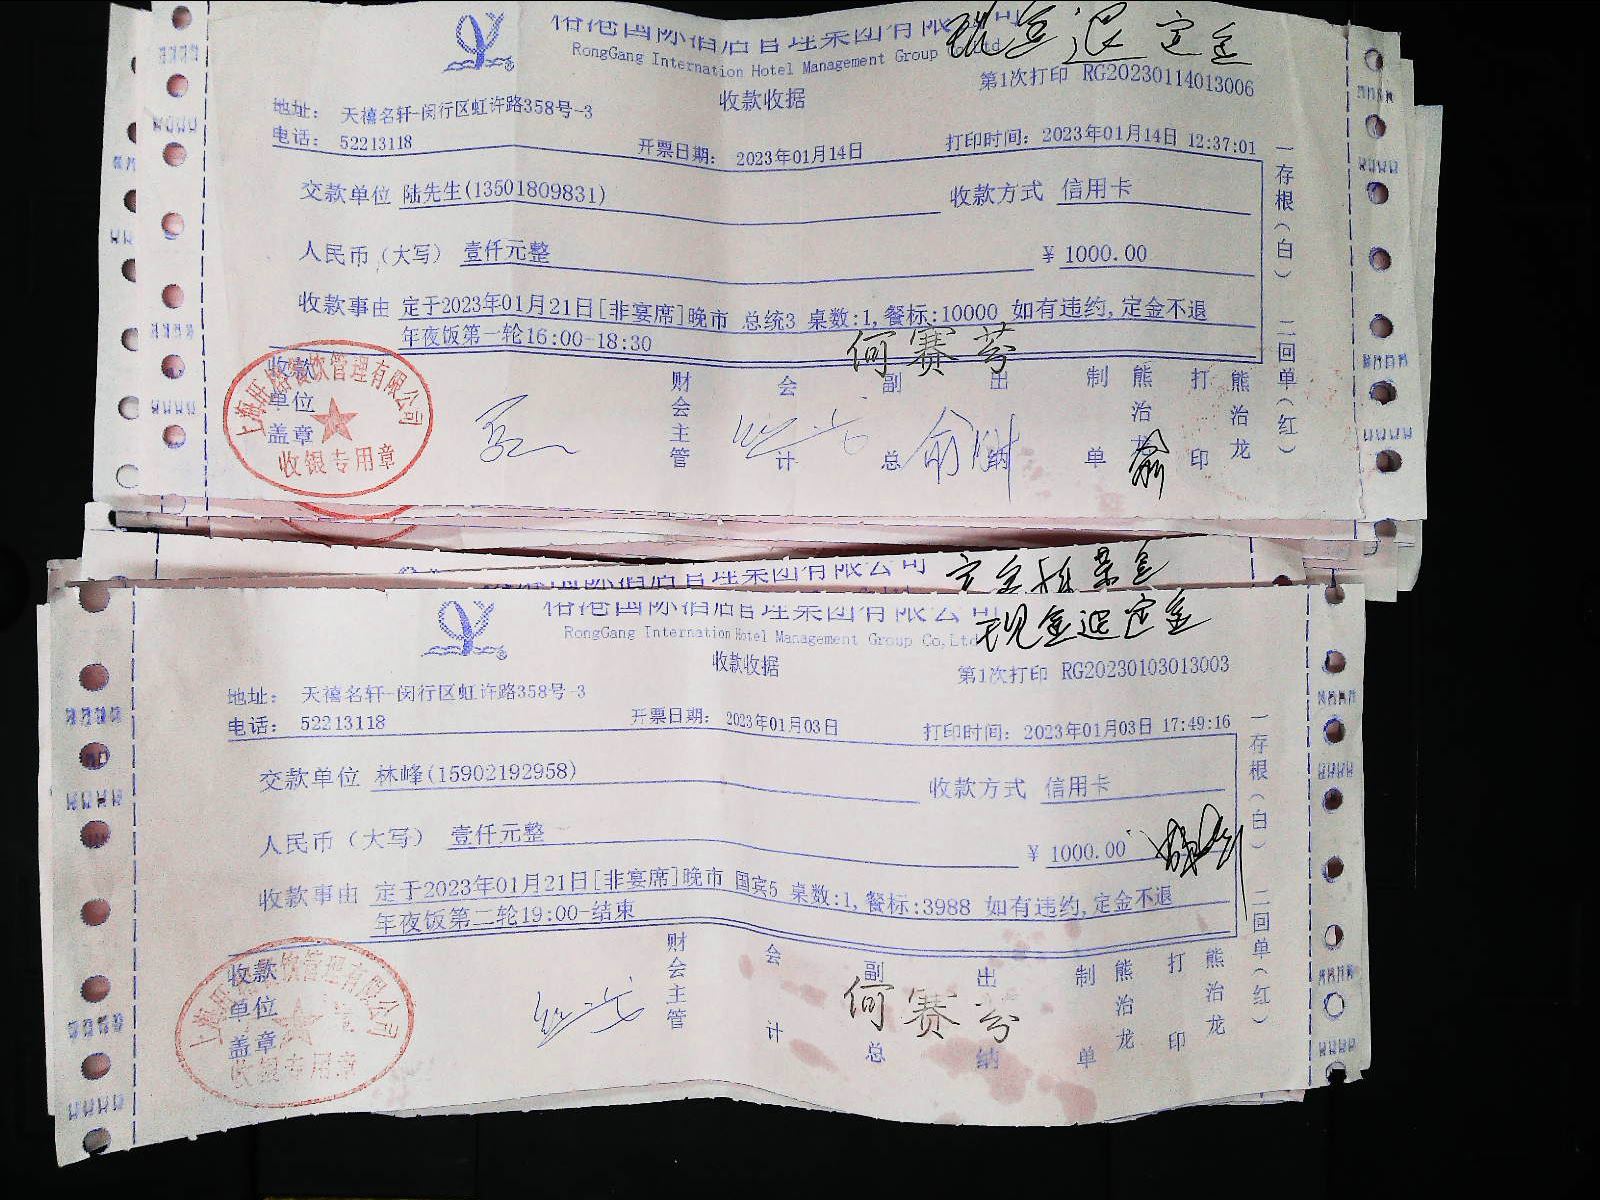 裕港国际酒店管理集团有限公司
现金退定金
RongGang Internation Hotel Management Group Co,Ltd
第1次打印 RG20230114013006
收款收据
地址： 天禧名轩-闵行区虹许路358号-3
电话： 52213118
开票日期： 2023年01月14日
打印时间： 2023年01月14日 12:37:01
交款单位 陆先生(13501809831)
收款方式 信用卡
人民币（大写） 壹仟元整
¥ 1000.00
收款事由 定于2023年01月21日[非宴席]晚市 总统3 桌数:1,餐标:10000 如有违约,定金不退
年夜饭第一轮16:00-18:30
何赛芬
收款单位盖章
收银专用章
财会主管
会计
副总
出纳
制单
熊治龙
打印
熊治龙
一存根（白） 二回单（红）
国际酒店管理集团有限公司
裕港国际酒店管理集团有限公司
现金退定金
RongGang Internation Hotel Management Group Co,Ltd
收款收据
第1次打印 RG20230103013003
地址： 天禧名轩-闵行区虹许路358号-3
电话： 52213118
开票日期： 2023年01月03日
打印时间： 2023年01月03日 17:49:16
交款单位 林峰(15902192958)
收款方式 信用卡
人民币（大写） 壹仟元整
¥ 1000.00
收款事由 定于2023年01月21日[非宴席]晚市 国宾5 桌数:1,餐标:3988 如有违约,定金不退
年夜饭第二轮19:00-结束
收款单位盖章
收银专用章
财会主管
会计
副总
何赛芬
出纳
制单
熊治龙
打印
熊治龙
一存根（白） 二回单（红）